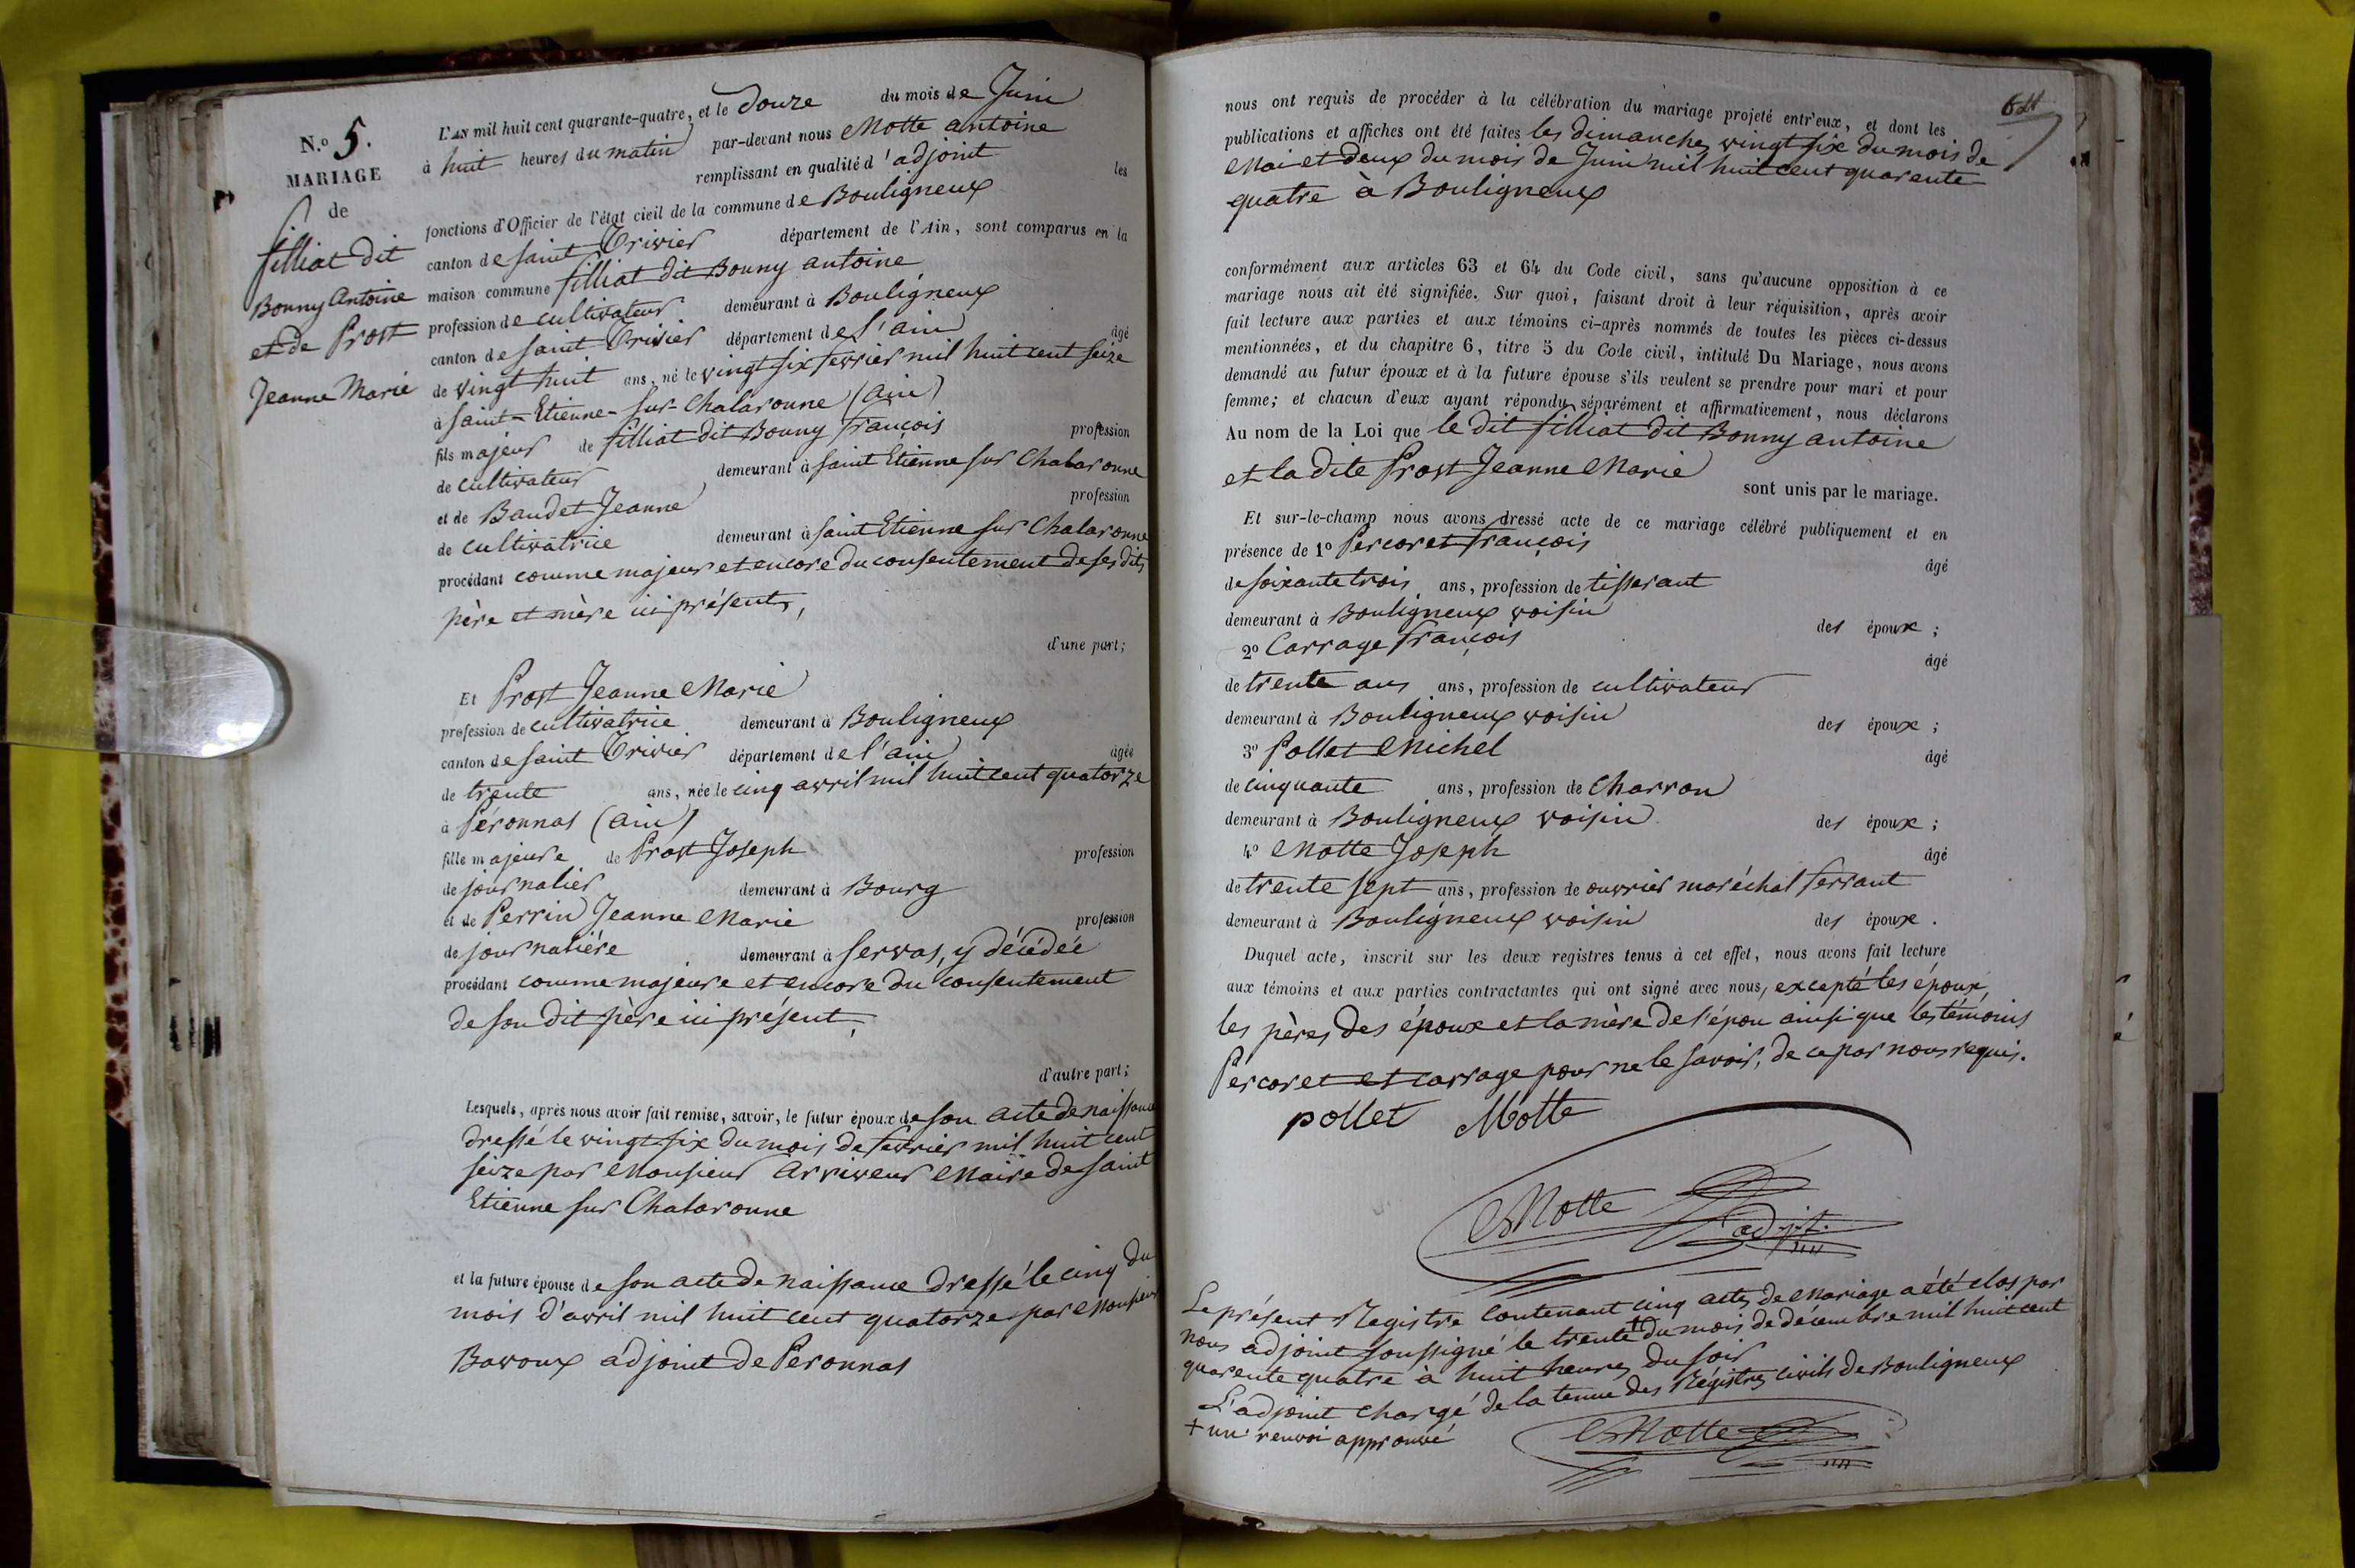 N.o 5.
MARIAGE
de
filliat dit
Bonny Antoine
et de Prost
Jeanne Marie
L'AN mil huit cent quarante-quatre, et le Douze du mois de Juin
à huit heures du matin par-devant nous Motte antoine
remplissant en qualité d'adjoint les
fonctions d'Officier de l'état civil de la commune de Bouligneux
canton de saint Trivier département de l'Ain, sont comparus en la
maison commune filliat dit Bonny antoine
profession de cultivateur demeurant à Bouligneux
canton de saint Trivier département de l'ain âgé
de vingt huit ans, né le vingt six fevrier mil huit cent seize
à saint-Etienne-sur-Chalaronne (ain)
fils majeur de filliat dit Bonny françois profession
de cultivateur demeurant à saint Etienne sur Chalaronne
et de Baudet Jeanne profession
de cultivatrice demeurant à saint Etienne sur Chalaronne
procédant comme majeur et encore du consentement de ses dits
père et mère ici présents,
d'une part;
Et Prost Jeanne Marie
profession de cultivatrice demeurant à Bouligneux
canton de saint Trivier département de l'ain âgée
de trente ans, née le cinq avril mil huit cent quatorze
à Péronnas (ain)
fille majeure de Prost Joseph profession
de journalier demeurant à Bourg
et de Perrin Jeanne Marie profession
de journalière demeurant à servas, y décédée
procédant comme majeure et encore du consentement
de son dit père ici présent,
d'autre part;
Lesquels, après nous avoir fait remise, savoir, le futur époux de son acte de naissance
dressé le vingt six du mois de fevrier mil huit cent
seize par Monsieur Arriveur Maire de saint
Etienne sur Chalaronne
et la future épouse de son acte de naissance dressé le cinq du
mois d'avril mil huit cent quatorze par Monsieur
Bavoux adjoint de Peronnas
nous ont requis de procéder à la célébration du mariage projeté entr'eux, et dont les
publications et affiches ont été faites les dimanches vingt six du mois de
Mai et deux du mois de Juin mil huit cent quarente
quatre à Bouligneux
conformément aux articles 63 et 64 du Code civil, sans qu'aucune opposition à ce
mariage nous ait été signifiée. Sur quoi, faisant droit à leur réquisition, après avoir
fait lecture aux parties et aux témoins ci-après nommés de toutes les pièces ci-dessus
mentionnées, et du chapitre 6, titre 5 du Code civil, intitulé Du Mariage, nous avons
demandé au futur époux et à la future épouse s'ils veulent se prendre pour mari et pour
femme; et chacun d'eux ayant répondu séparément et affirmativement, nous déclarons
Au nom de la Loi que le dit filliat dit Bonny antoine
et la dite Prost Jeanne Marie
sont unis par le mariage.
Et sur-le-champ nous avons dressé acte de ce mariage célébré publiquement et en
présence de 1o Percoret françois
âgé
de soixante trois ans, profession de tisserant
demeurant à Bouligneux voisin des époux;
2o Carrage françois
âgé
de trente ans ans, profession de cultivateur
demeurant à Bouligneux voisin des époux;
3o Pollet Michel
âgé
de cinquante ans, profession de Charron
demeurant à Bouligneux voisin des époux;
4o Motte Joseph
âgé
de trente sept ans, profession de ouvrier maréchal ferrant
demeurant à Bouligneux voisin des époux.
Duquel acte, inscrit sur les deux registres tenus à cet effet, nous avons fait lecture
aux témoins et aux parties contractantes qui ont signé avec nous, excepté les époux,
les pères des époux et la mère de l'épou ainsi que les témoins
Percoret et carrage pour ne le savoir, de ce par nous requis.
pollet Motte
Motte adjt.
Le présent Registre Contenant cinq actes de Mariage a été clos par
nous adjoint soussigné le trente + du mois de décembre mil huit cent
quarente quatre à huit heures du soir
L'adjoint chargé de la tenue des Régistres civils de Bouligneux
+ un renvoi approuvé
Motte